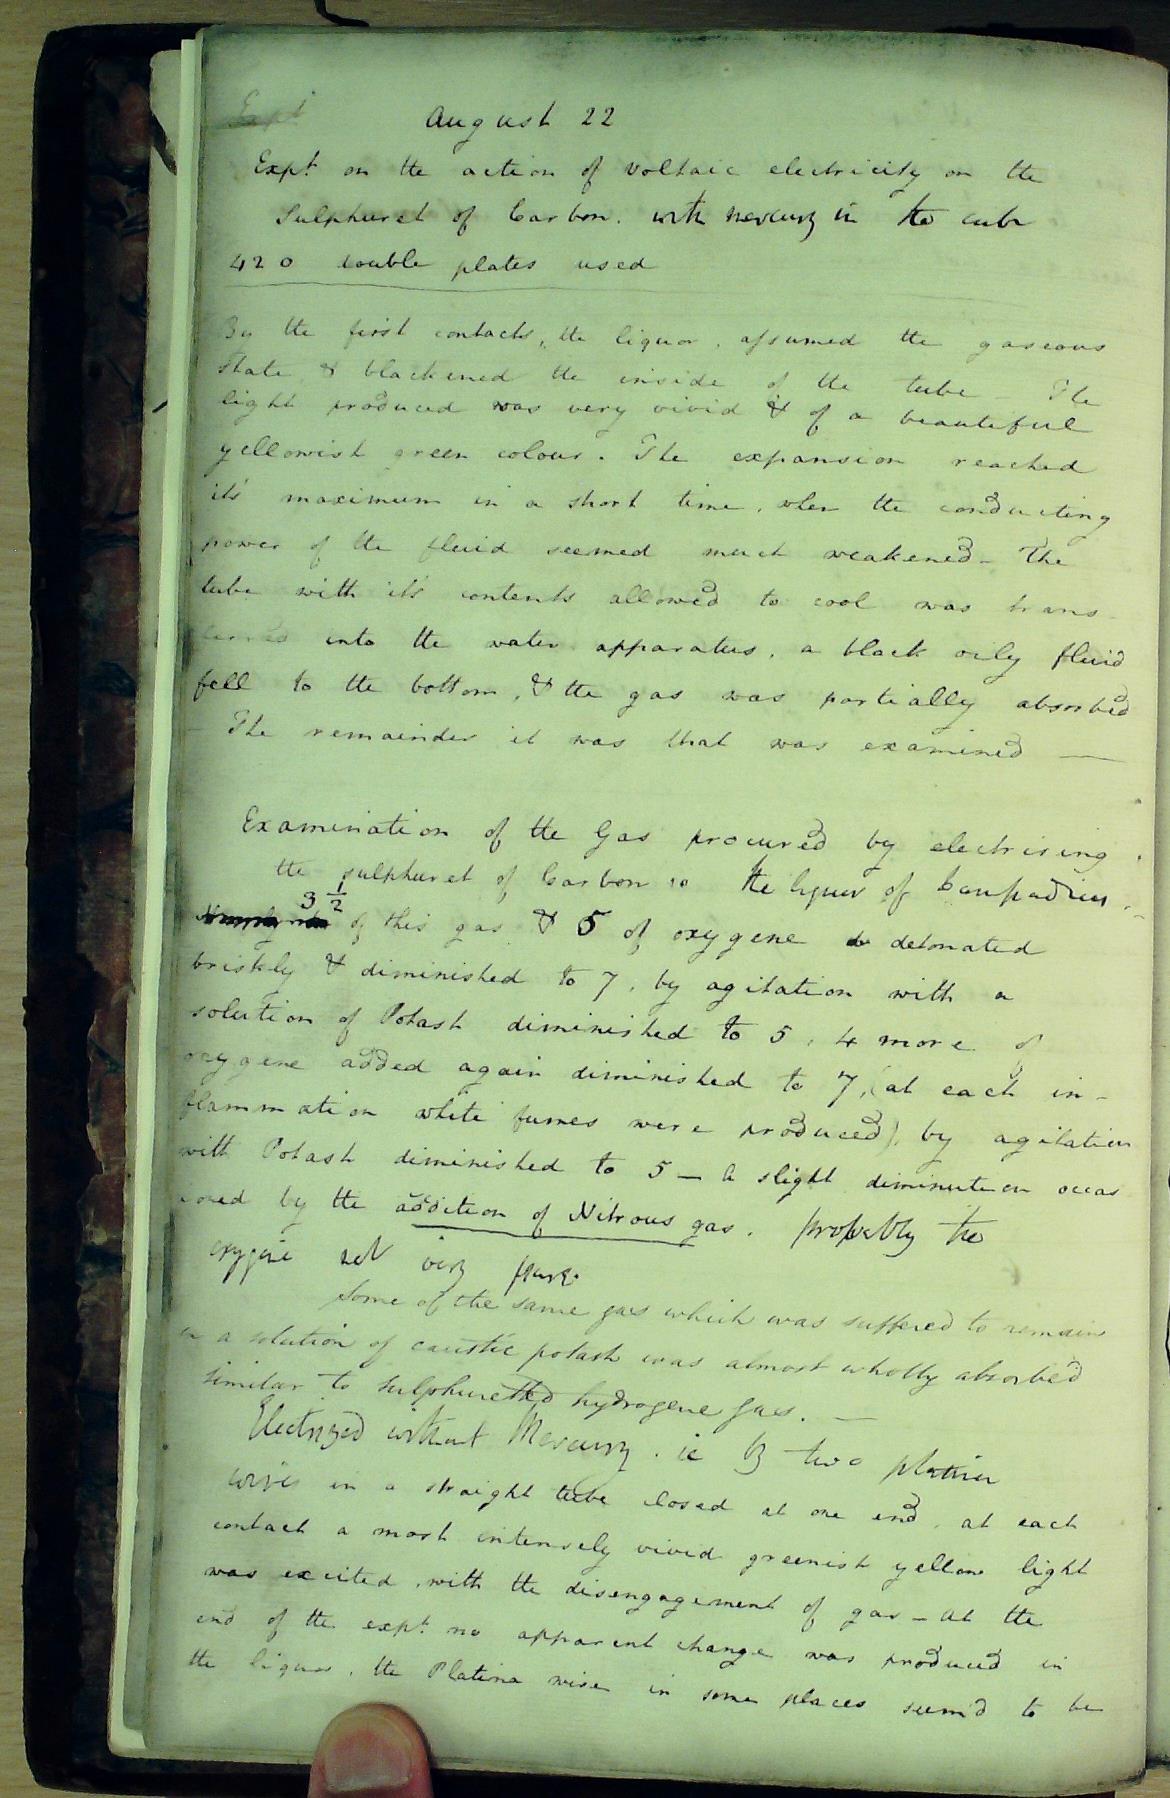 Expt
August 22
Expt on the action of voltaic electricity on the
Sulphuret of Carbon. with mercury in the tube
420 double plates used
By the first contacts, the liquor, assumed the gaseous
state & blackened the inside of the tube – The
light produced was very vivid & of a beautiful
yellowish green colour. The expansion reached
it's maximum in a short time, when the conducting
power of the fluid seemed much weakened – The
tube with it's contents allowed to cool was trans
ferred into the water apparatus, a black oily fluid
fell to the bottom, & the gas was partially absorbed
– The remainder it was that was examined —
Examination of the Gas procured by electrising
the sulphuret of Carbon or the liquor of Lampadius
3 1/2 of this gas & 5 of oxygene detonated
briskly & diminished to 7, by agitation with a
solution of Potash diminished to 5, 4 more of
oxygene added again diminished to 7, (at each in-
flammation white fumes were produced), by agitation
with Potash diminished to 5 – A slight diminution occas
ioned by the addition of Nitrous gas. probably the
oxygene not very pure.
Some of the same gas which was suffered to remain
in a solution of caustic potash was almost wholly absorbed
similar to sulphuretted hydrogene gas. —
Electrized without Mercury. ie by two platina
wires in a straight tube closed at one end, at each
contact a most intensely vivid greenish yellow light
was excited, with the disengagement of gas – at the
end of the expt. no apparent change was produced in
the liquor, the Platina wire in some places seem'd to be